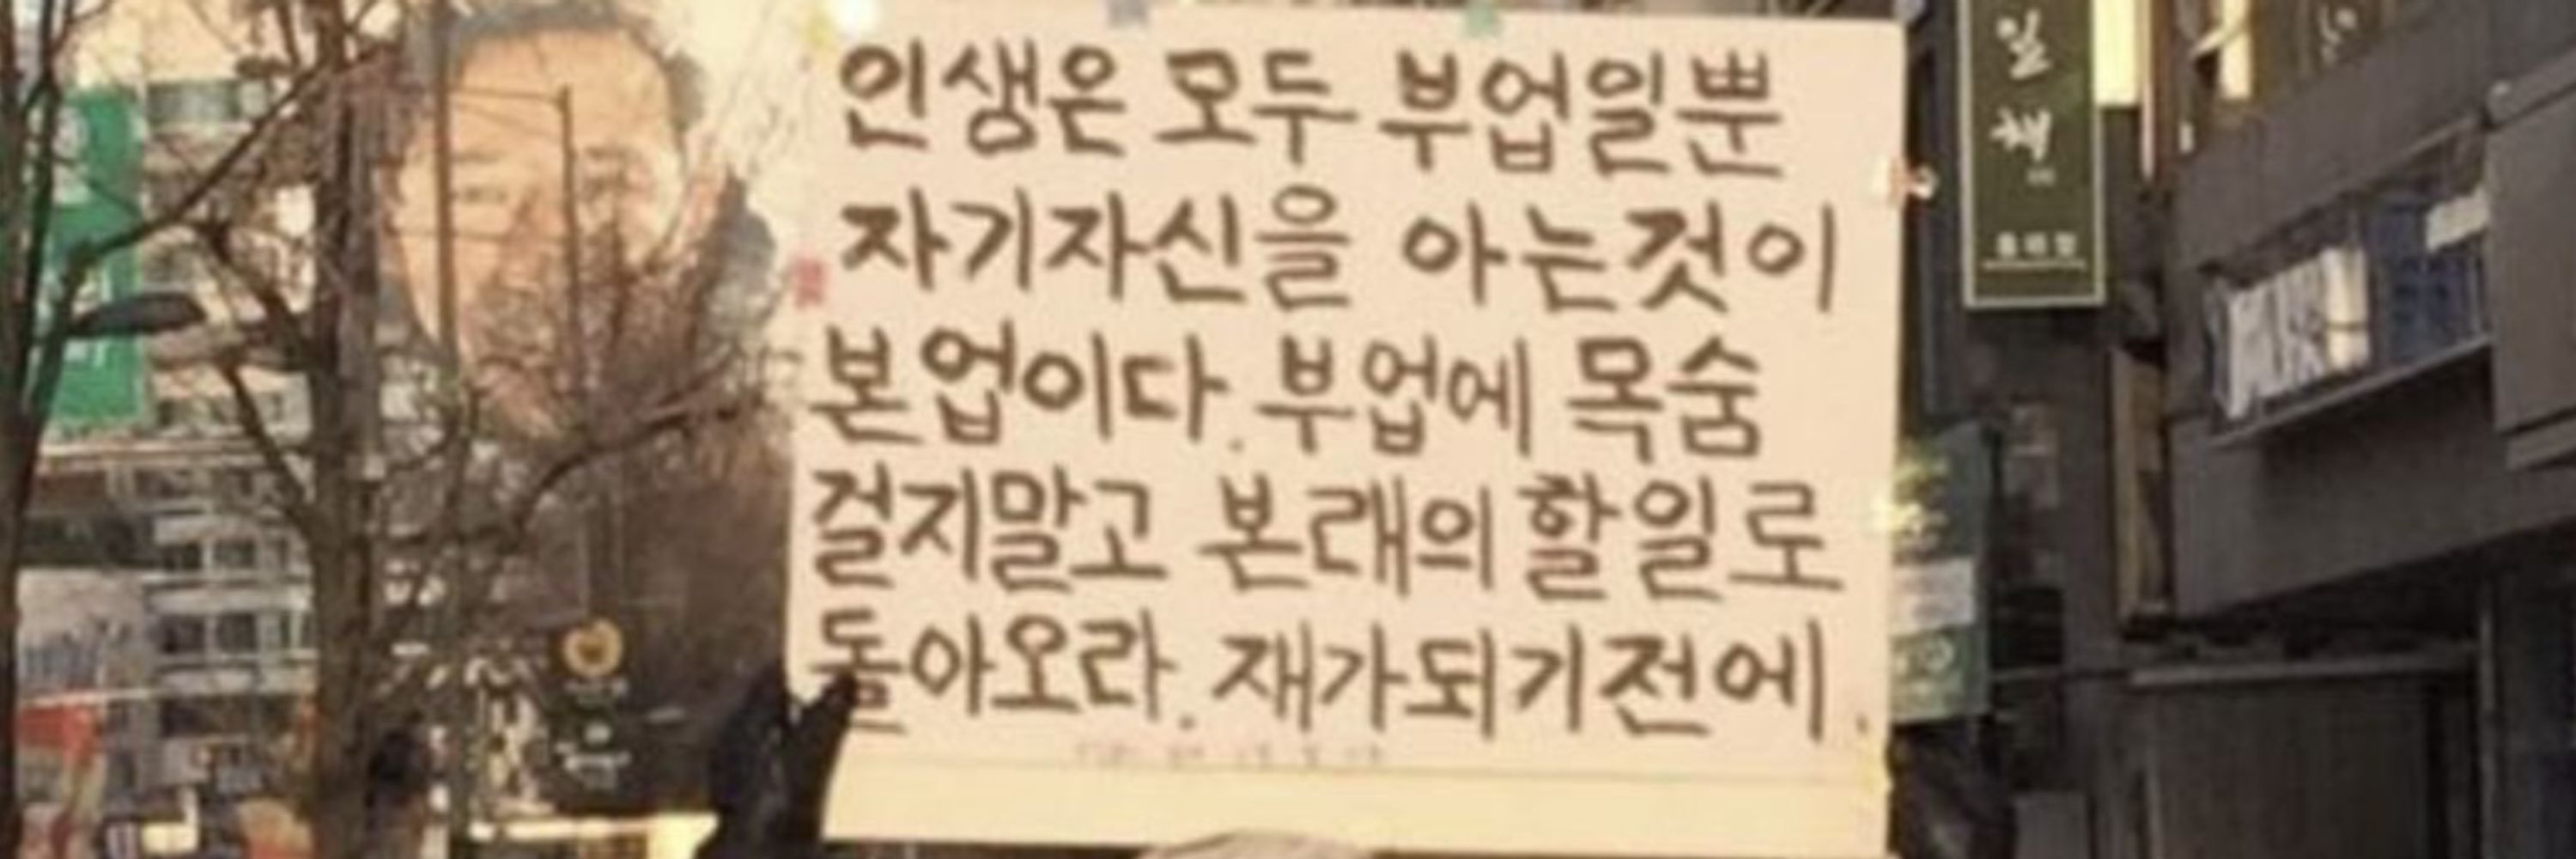 인생은 모두 부업일뿐
자기자신을 아는것이
본업이다. 부업에 목숨
걸지말고 본래의 할일로
돌아오라. 재가되기전에.
일
책